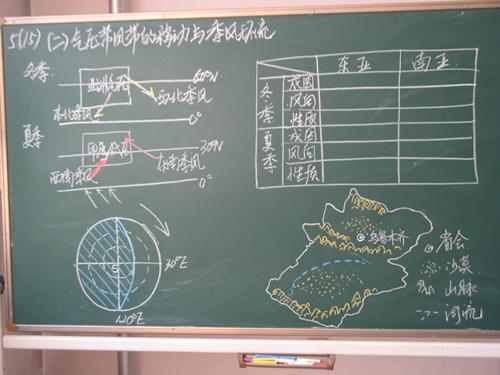 5(15) (二)气压带风带的移动与季风环流
冬季
亚洲高压
60°N
东北季风
西北季风
0°
夏季
印度低压
30°N
西南季风
东南季风
0°
S
30°E
120°E
东亚 南亚
冬季
成因
风向
性质
夏季
成因
风向
性质
乌鲁木齐
省会
沙漠
山脉
河流